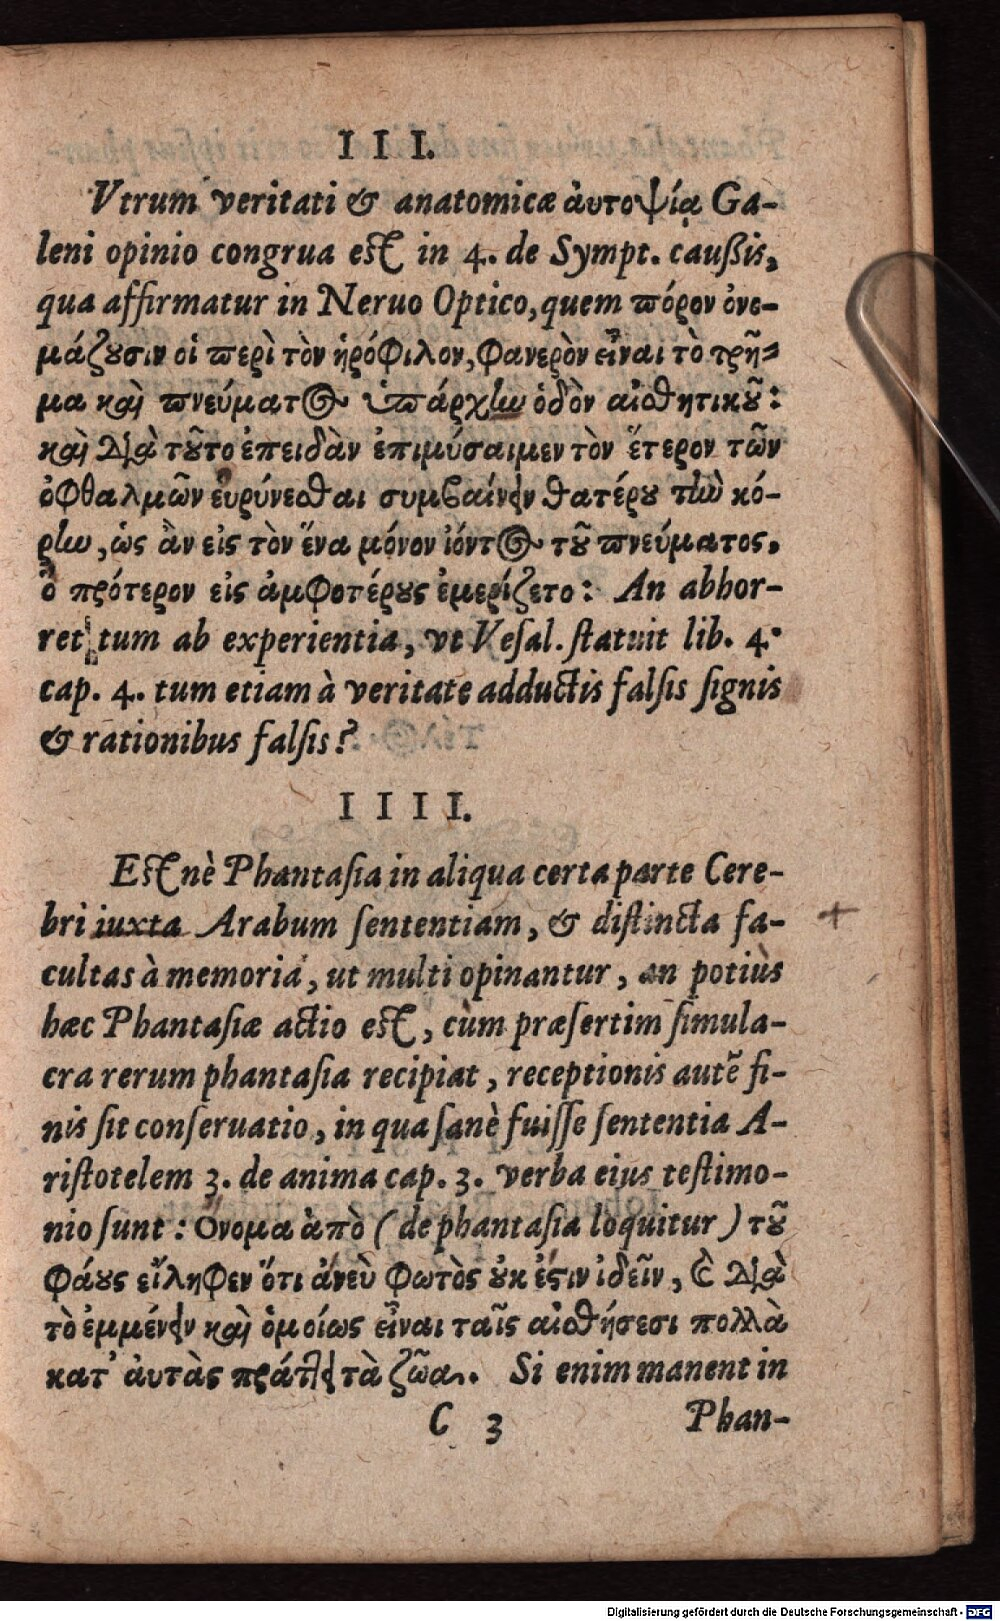 III.
Vtrum veritati & anatomicæ ἀυτοψίᾳ Ga-
leni opinio congrua est in 4. de Sympt. caußis,
qua affirmatur in Neruo Optico, quem πόρον ὀνο-
μάζουσιν οἱ περὶ τὸν ἡρόφιλον, φανερὸν εἶναι τὸ τρῆ-
μα καὶ πνεύματος ὑπάρχην ὁδὸν αἰσθητικοῦ:
καὶ διὰ τοῦτο ἐπειδὰν ἐπιμύσαιμεν τὸν ἕτερον τῶν
ὀφθαλμῶν ευρύνεσθαι συμβαίνειν θατέρου τὴν κό-
ρην, ὡς ἂν εἰς τὸν ἕνα μόνον ἰόντος τοῦ πνεύματος,
ὃ πρότερον εἰς ἀμφοτέρους ἐμερίζετο: An abhor-
ret tum ab experientia, vt Vesal. statuit lib. 4.
cap. 4. tum etiam à veritate adductis falsis signis
& rationibus falsis?
IIII.
Est nè Phantasia in aliqua certa parte Cere-
bri iuxta Arabum sententiam, & distincta fa-
cultas à memoria, ut multi opinantur, an potiùs
hæc Phantasiæ actio est, cùm præsertim simula-
cra rerum phantasia recipiat, receptionis autẽ fi-
nis sit conseruatio, in qua sanè fuisse sententia A-
ristotelem 3. de anima cap. 3. verba eius testimo-
nio sunt: Ονομα ἀπὸ (de phantasia loquitur) τοῦ
φάους εἴληφεν ὅτι ἀνεὺ φωτὸς ουκ ἐστιν ἰδεῖν, Cὶ διὰ
τὸ ἐμμένειν καὶ ὁμοίως εἶναι ταῖς αἰσθήσεσι πολλὰ
κατ' ἀυτὰς πράττει τὰ ζῶα. Si enim manent in
C 3 Phan-
Digitalisierung gefördert durch die Deutsche Forschungsgemeinschaft - DFG